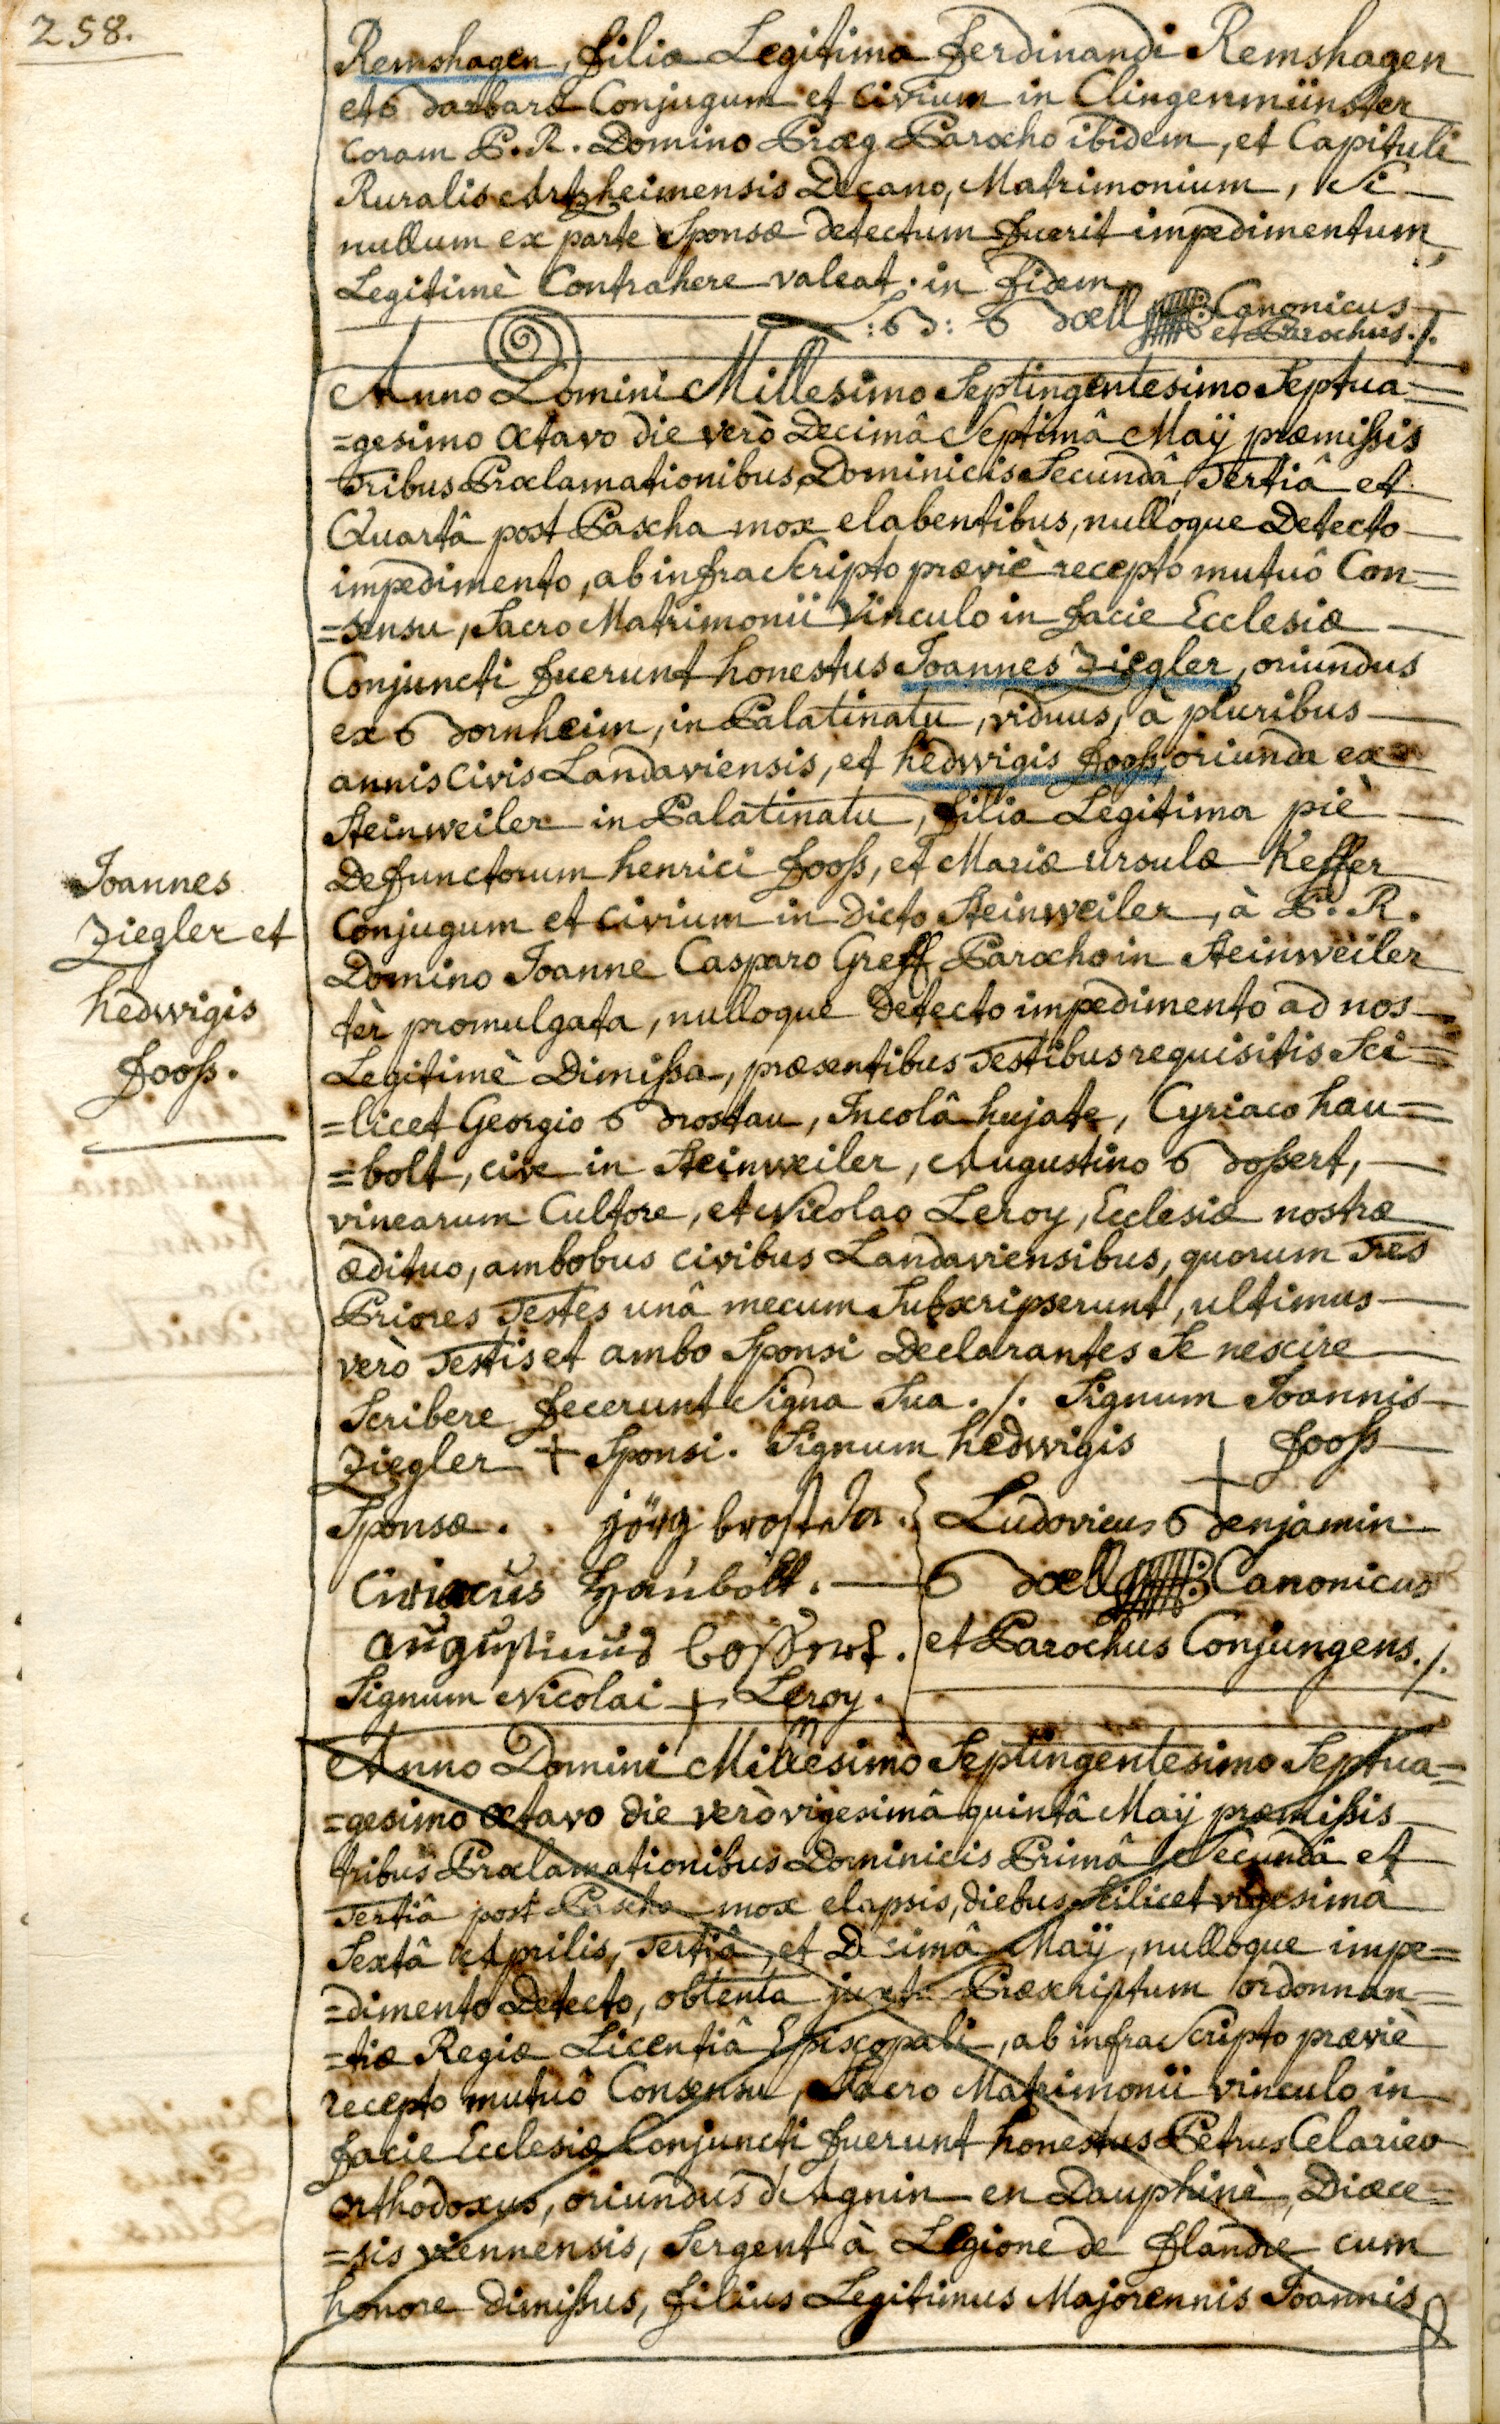 258.
Remshagen, filia Legitima Ferdinandi Remshagen
et Barbaræ Conjugum et Civium in Clingenmünster
coram P. R. Domino Præg Parocho ibidem, et Capituli
Ruralis Artzheimensis Decano, Matrimonium, Si
nullum ex parte Sponsæ detectum fuerit impedimentum,
Legitimè Contrahere valeat. in fidem
Bœll Canonicus
et Parochus ./.
Anno Domini Millesimo Septingentesimo Septua=
=gesimo Octavo die verò Decimâ Septimâ Maÿ præmissis
Tribus Proclamationibus, Dominicis Secundâ, Tertiâ et
Quartâ post Pascha mox elabentibus, nulloque Detecto
impedimento, ab infra Scripto præviè recepto mutuô Con=
=sensu, Sacro Matrimonii Vinculo in facie Ecclesiæ
Conjuncti fuerunt honestus Joannes Ziegler, oriundus
ex Bornheim, in Palatinatu, viduus, à pluribus
annis Civis Landaviensis, et hedwigis fooss, oriunda ex
Steinweiler in Palatinatu, filia Legitima piè
Defunctorum henrici fooss, et Mariæ ursulæ Keffer
Conjugum et civium in dicto Steinweiler, à P. R.
Domino Joanne Casparo Greff Parocho in Steinweiler
tèr promulgata, nulloque Detecto impedimento ad nos
Legitimè Dimissa, præsentibus Testibus requisitis Sci=
=licet Georgio Brostau, Incolâ hujate, Cyriaco hau=
=bolt, cive in Steinweiler, Augustino Bossert,
vinearum Cultore, et Nicolao Leroy, Ecclesiæ nostræ
ædituo, ambobus civibus Landaviensibus, quorum Tres
Priores Testes unâ mecum Subscripserunt, ultimus
verò Testis et ambo Sponsi Declarantes Se nescire
Scribere fecerunt Signa Sua ./. Signum Joannis
Ziegler + Sponsi. Signum hedwigis + fooss
Sponsæ. jörg brost
Ciriacus Haubolt.
augustinus bossert.
Signum Nicolai + Leroy.
Ludovicus Benjamin
Bœll Canonicus
et Parochus Conjungens ./.
Joannes
Ziegler et
hedwigis
fooss.
Anno Domini Millesimo Septingentesimo Septua=
=gesimo Octavo die verò vigesimâ quintâ Maÿ præmissis
tribus Proclamationibus Dominicis Primâ Secundâ et
Tertiâ post Pascha mox elapsis, diebus Scilicet vigesimâ
Sextâ Aprilis, Tertiâ, et Decimâ Maÿ, nulloque impe=
=dimento Detecto, obtenta juxta Præscriptum ordonnan=
=tiæ Regiæ Licentiâ Episcopali, ab infra Scripto præviè
recepto mutuô Consensu, Sacro Matrimonii vinculo in
facie Ecclesiæ Conjuncti fuerunt honestus Petrus Clarieo
orthodoxus, oriundus d'Agnin en Dauphinè, Diœce=
=sis viennensis, Sergent à Legione de flandre cum
honore dimissus, filius Legitimus Majorennis Joannis